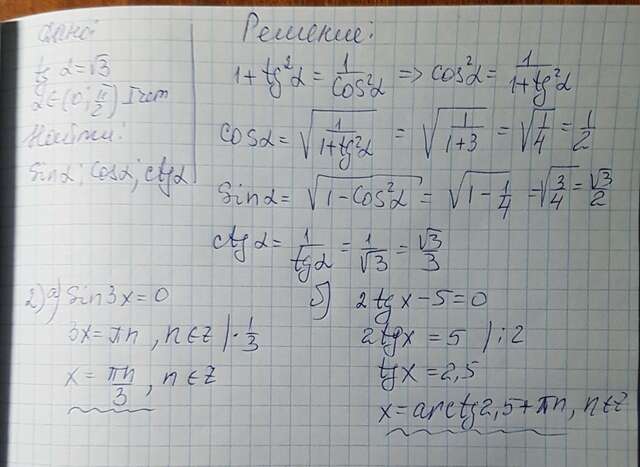 Дано:
tg α = √3
α ∈ (0; π/2) I чет
Найти:
Sin α; Cos α; ctg α
Решение:
1 + tg²α = 1/Cos²α => cos²α = 1/(1+tg²α)
Cos α = √(1/(1+tg²α)) = √(1/(1+3)) = √(1/4) = 1/2
Sin α = √(1-Cos²α) = √(1-1/4) - √(3/4) = √3/2
ctg α = 1/tgα = 1/√3 = √3/3
2) а) Sin 3x = 0
3x = πn, n ∈ Z | · 1/3
x = πn/3, n ∈ Z
б) 2tgx - 5 = 0
2tgx = 5 | : 2
tgx = 2,5
x = arctg2,5 + πn, n ∈ Z